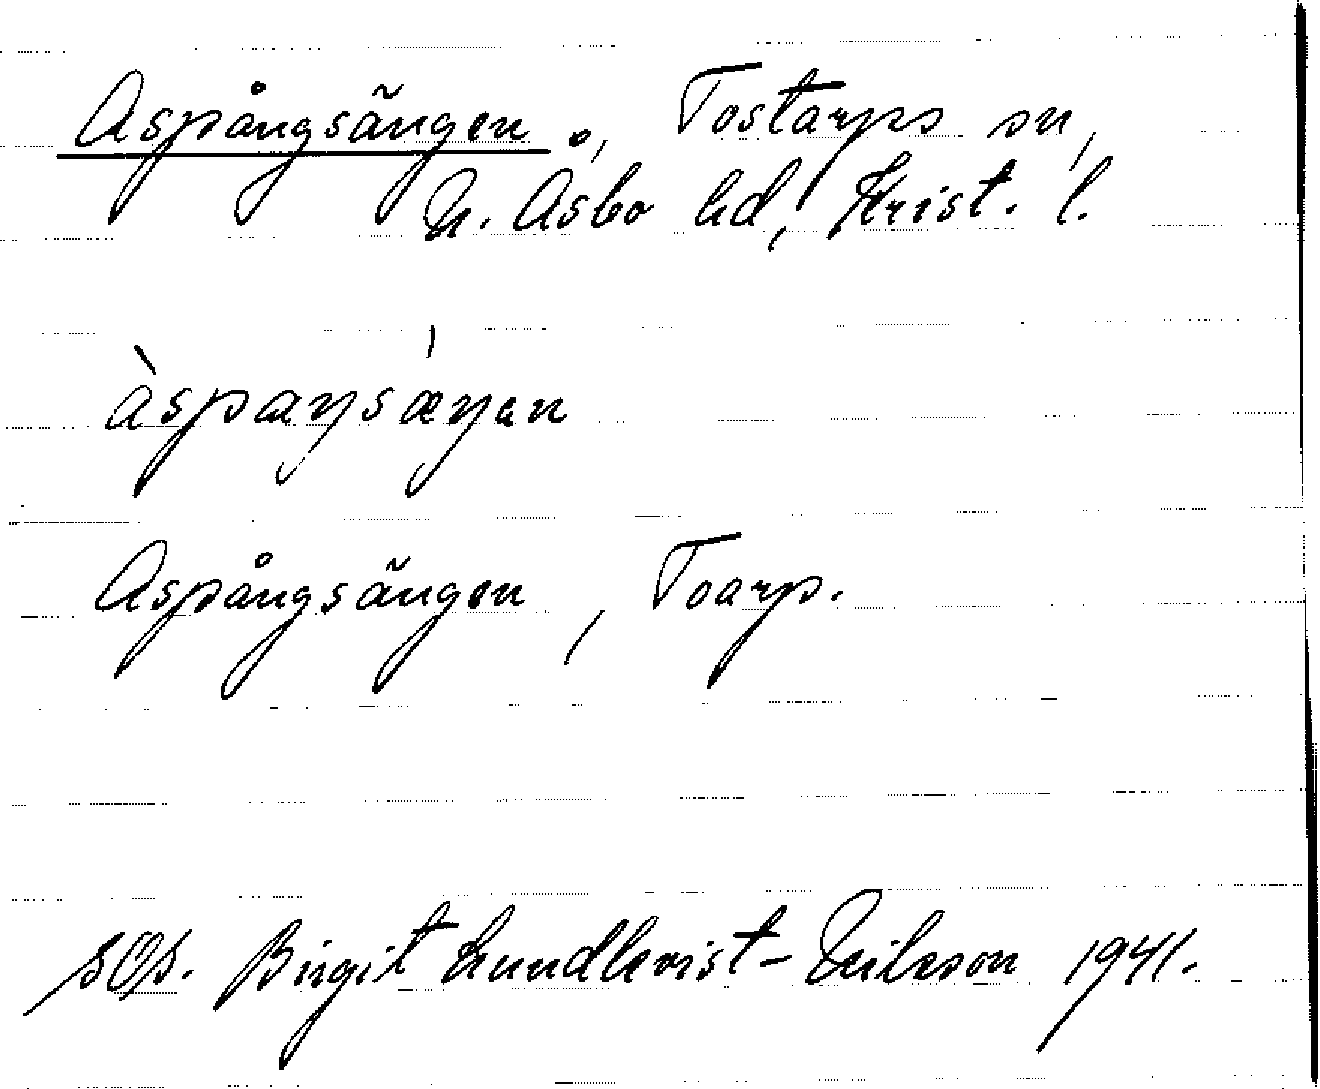 Aspångsängen o, Tostarps sn,
N. Åsbo hd, Krist. l.
àspaŋsæ̀ŋən
Aspångsängen, Toarp.
Birgit Lundkvist-Nilsson 1941.